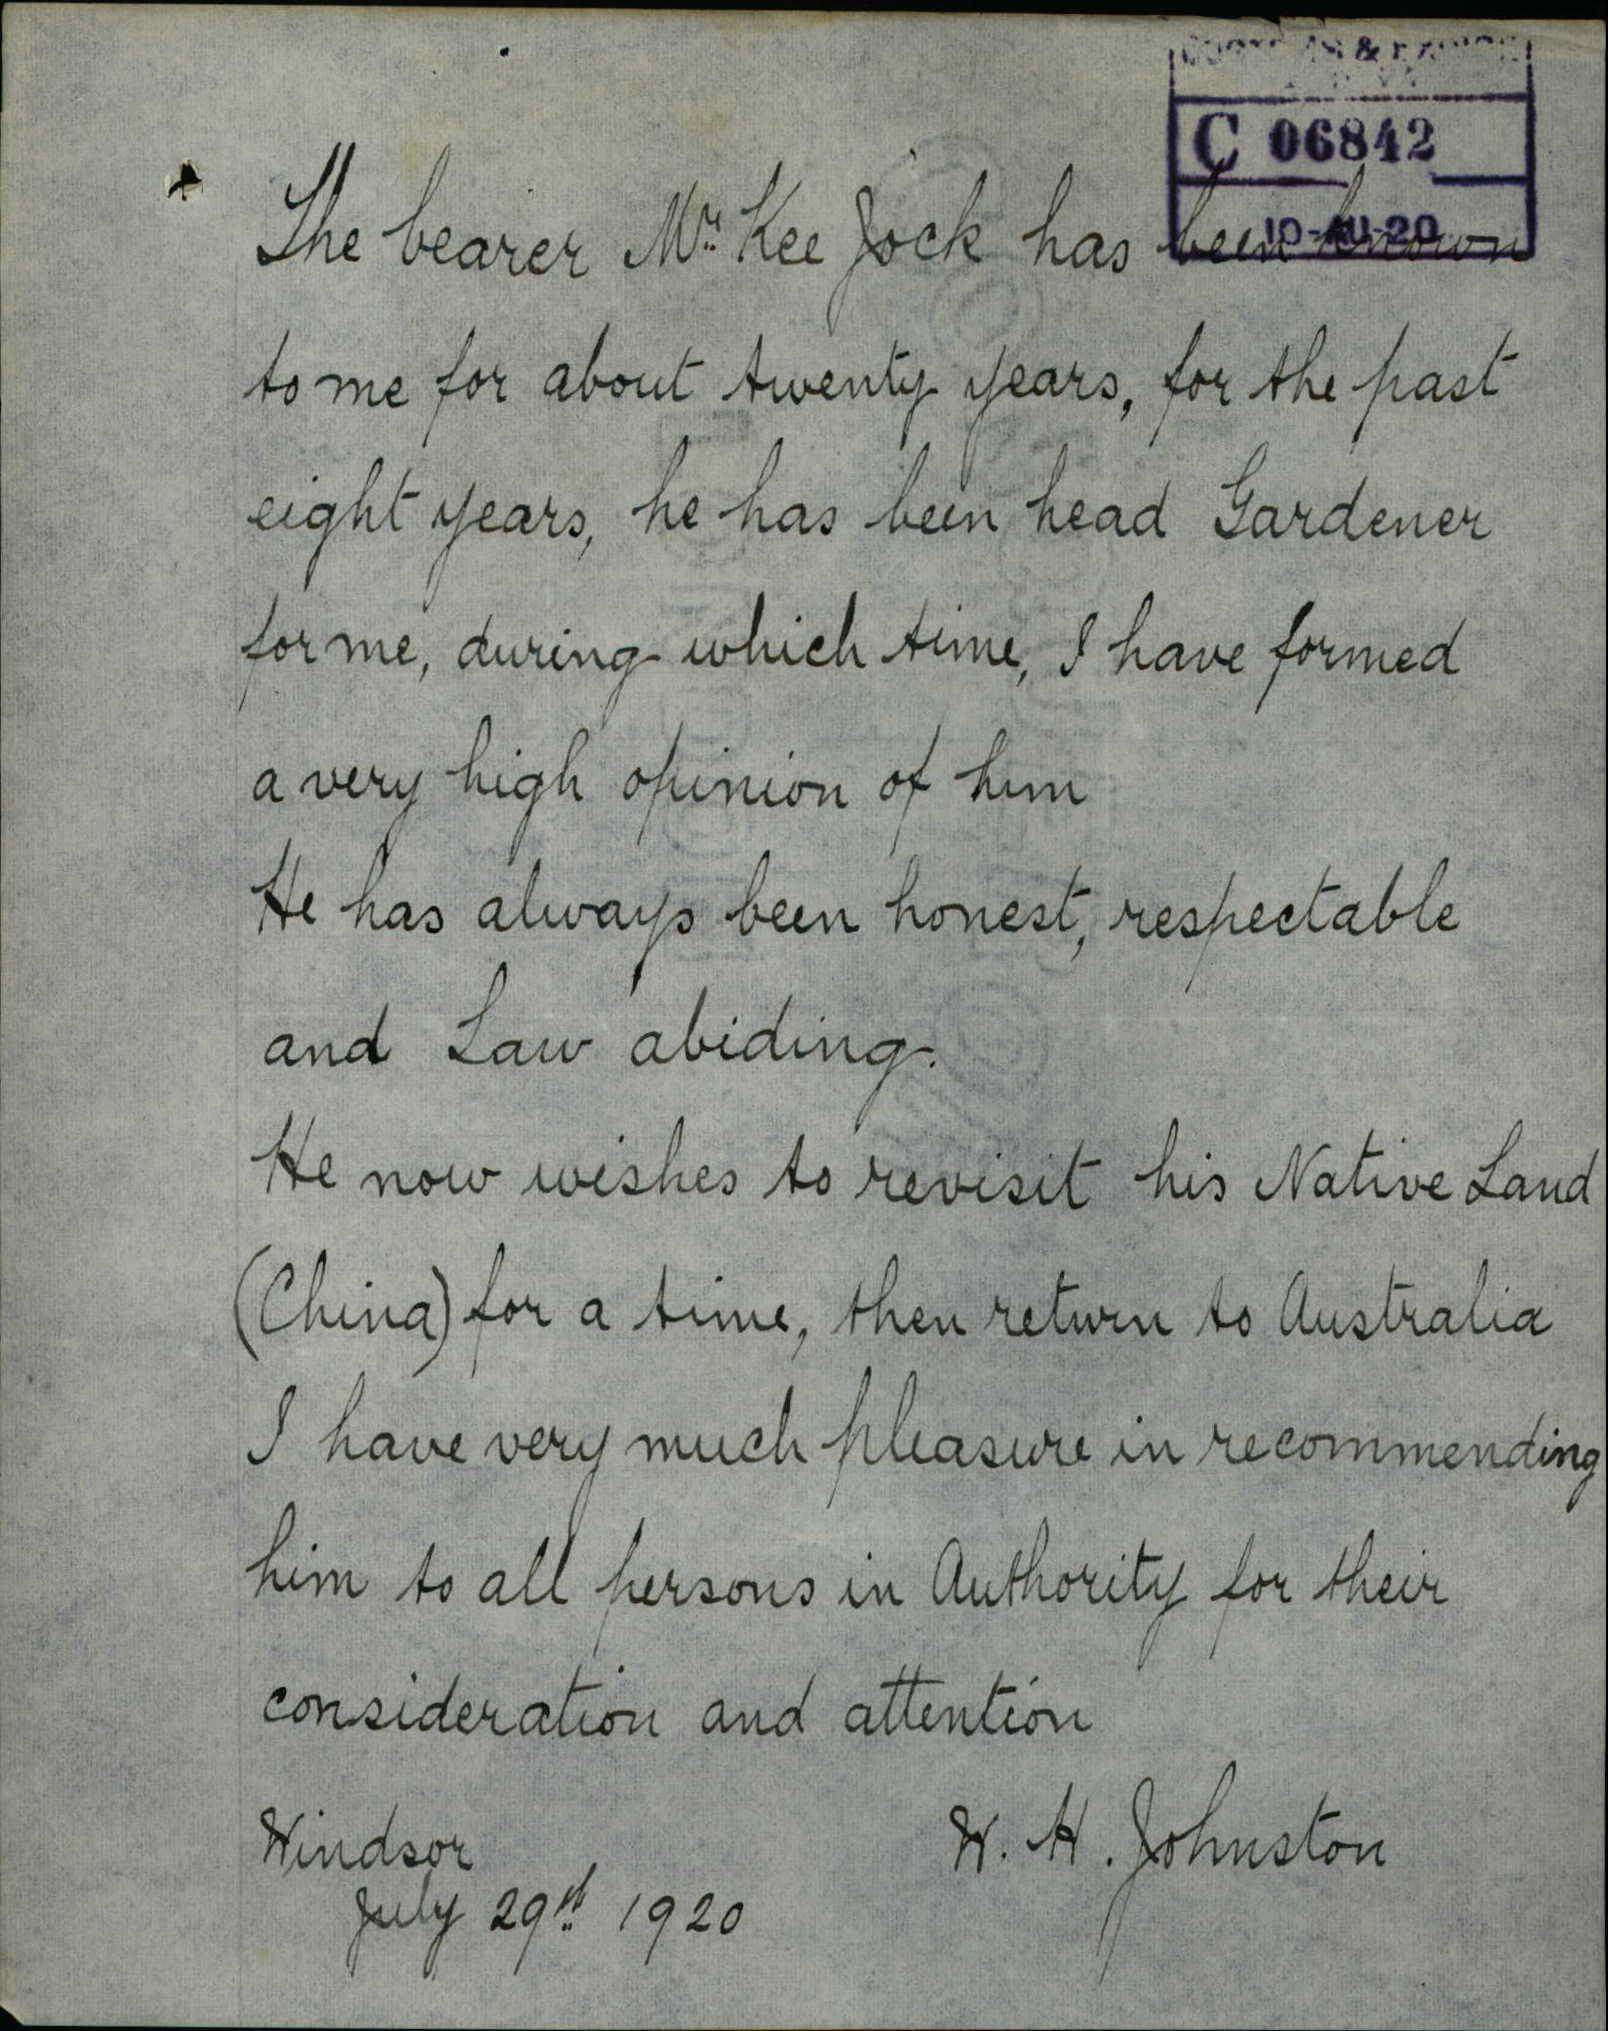 C 06842
10-AU-20
The bearer Mr. Kee Jock has been known
to me for about twenty years, for the past
eight years, he has been head Gardener
for me, during which time, I have formed
a very high opinion of him
He has always been honest, respectable
and Law abiding.
He now wishes to revisit his Native Land
(China) for a time, then return to Australia
I have very much pleasure in recommending
him to all persons in Authority for their
consideration and attention
W. H. Johnston
Windsor
July 29th 1920